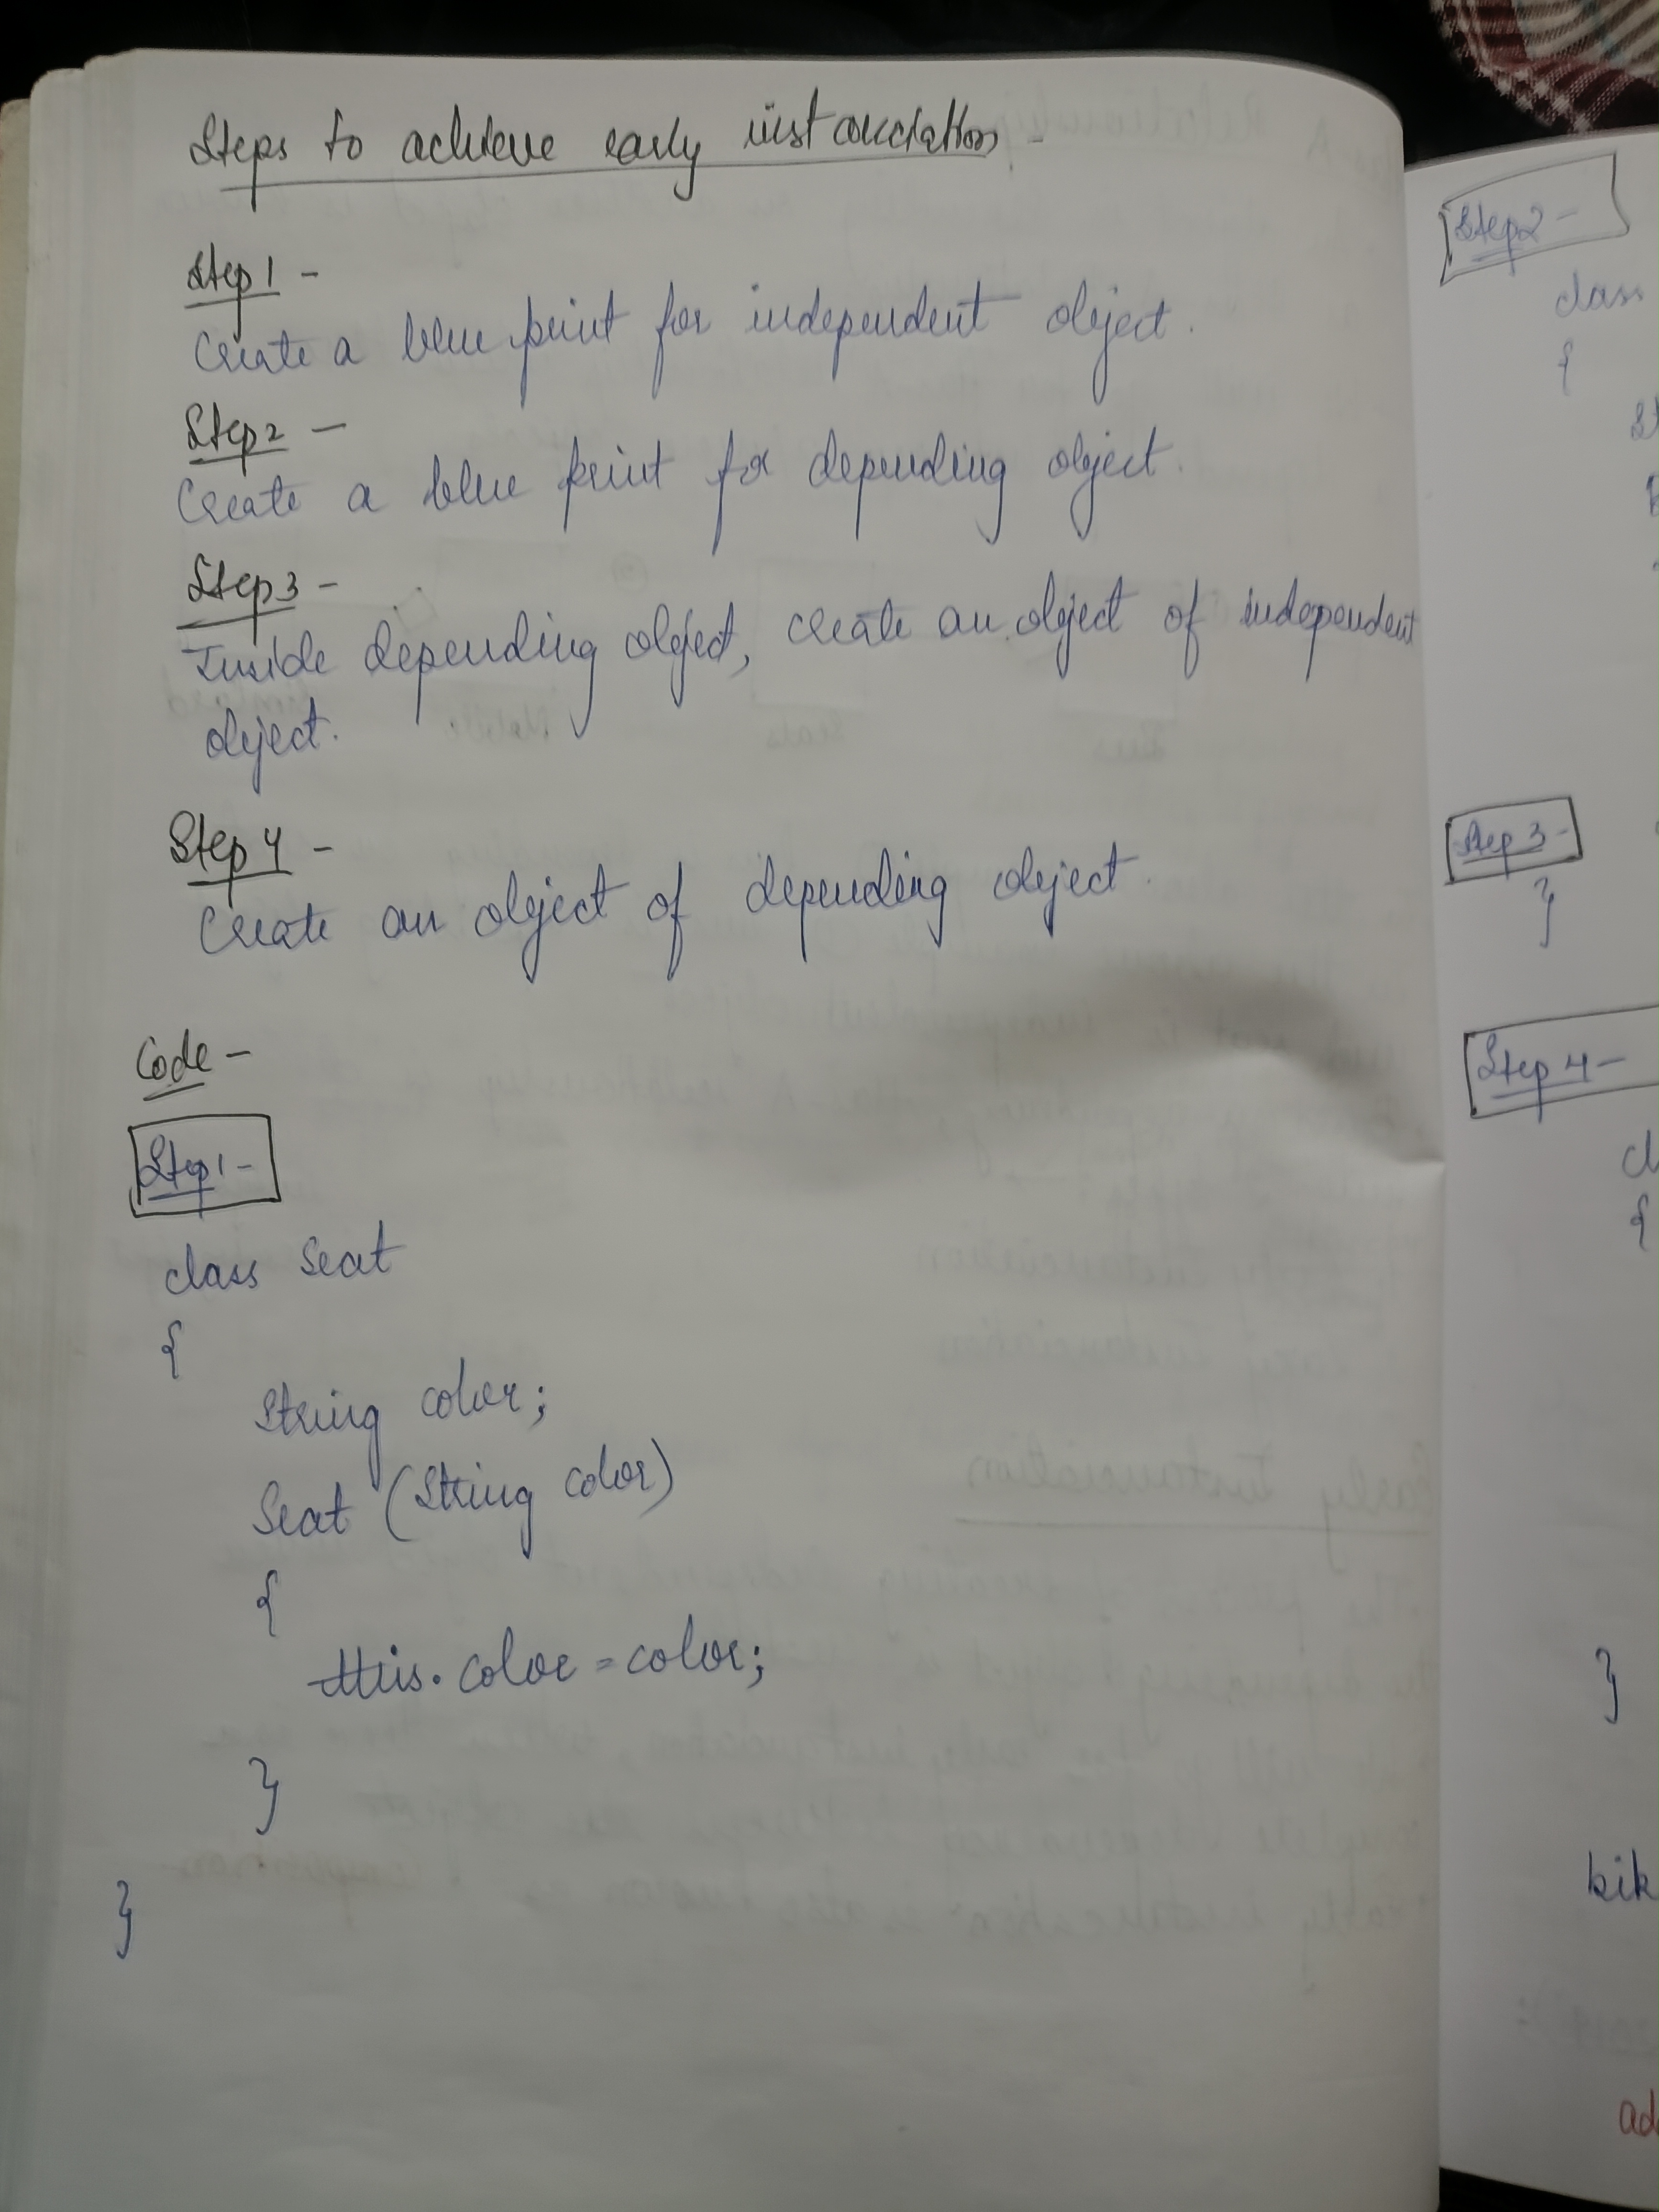 Steps to achieve early instanciation -
Step 1 -
Create a blue print for independent object.
Step 2 -
Create a blue print for depending object.
Step 3 -
Inside depending object, create an object of independent
object.
Step 4 -
Create an object of depending object.
Code -
Step 1 -
class Seat
{
String color;
Seat (String color)
{
this.color = color;
}
}
Step 2 -
class
{
St
Step 3 -
}
Step 4 -
cl
{
}
bik
ad